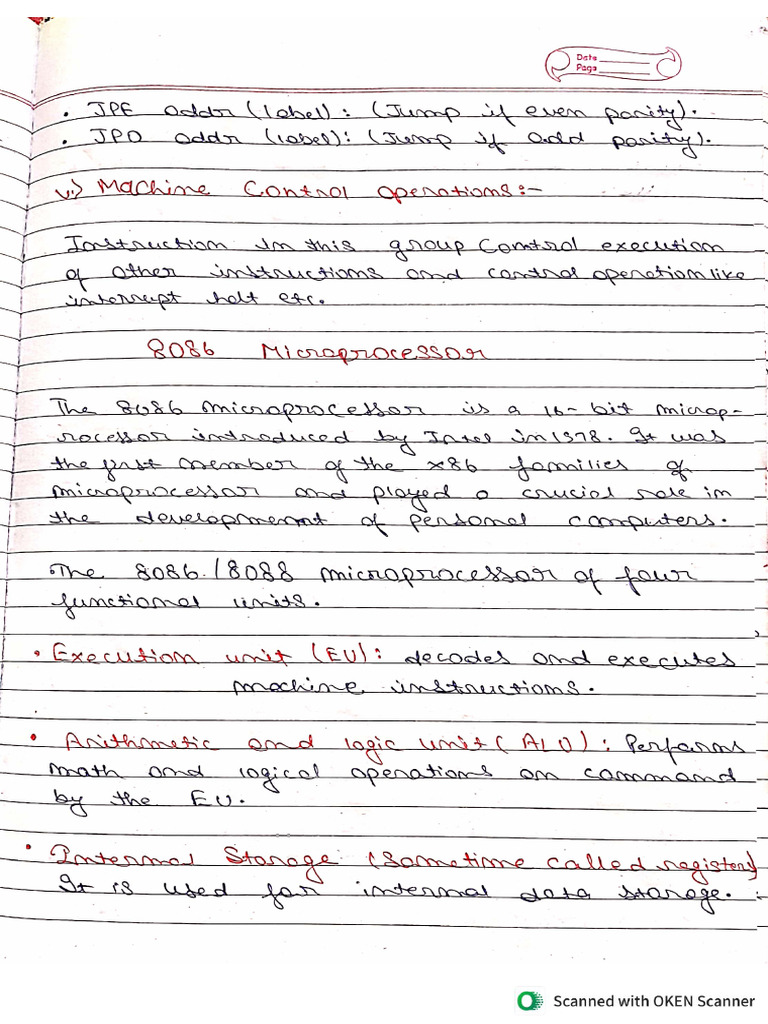 Date
Page
• JPE addr (label) : (Jump if even parity).
• JPO addr (label) : (Jump if odd parity).
v.) Machine Control operations:-
Instruction in this group Control execution
of other instructions and control operation like
interrupt halt etc.
8086 Microprocessor
The 8086 microprocessor is a 16-bit microp-
rocessor introduced by Intel in 1978. It was
the first member of the x86 families of
microprocessor and played a crucial role in
the development of personal computers.
The 8086/8088 microprocessor of four
functional units.
• Execution unit (EU): decodes and executes
machine instructions.
• Arithmetic and logic unit (ALU) : Performs
math and logical operations on command
by the EU.
• Internal Storage (Sometime called registers)
It is used for internal data storage.
Scanned with OKEN Scanner